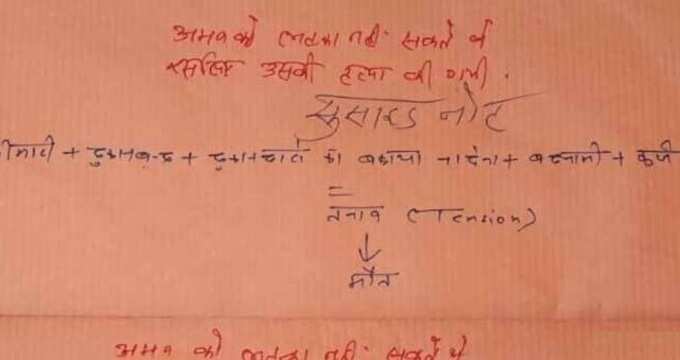 अमन को लटका नहीं सकते थे
इसलिए उसकी हत्या की गयी.
सुसाइड नोट
ीमारी + दुकान बन्द + दुकानदारो का बकाया ना देना + बदनामी + कर्ज
=
तनाव (Tension)
↓
मौत
अमन को लटका नहीं सकते थे